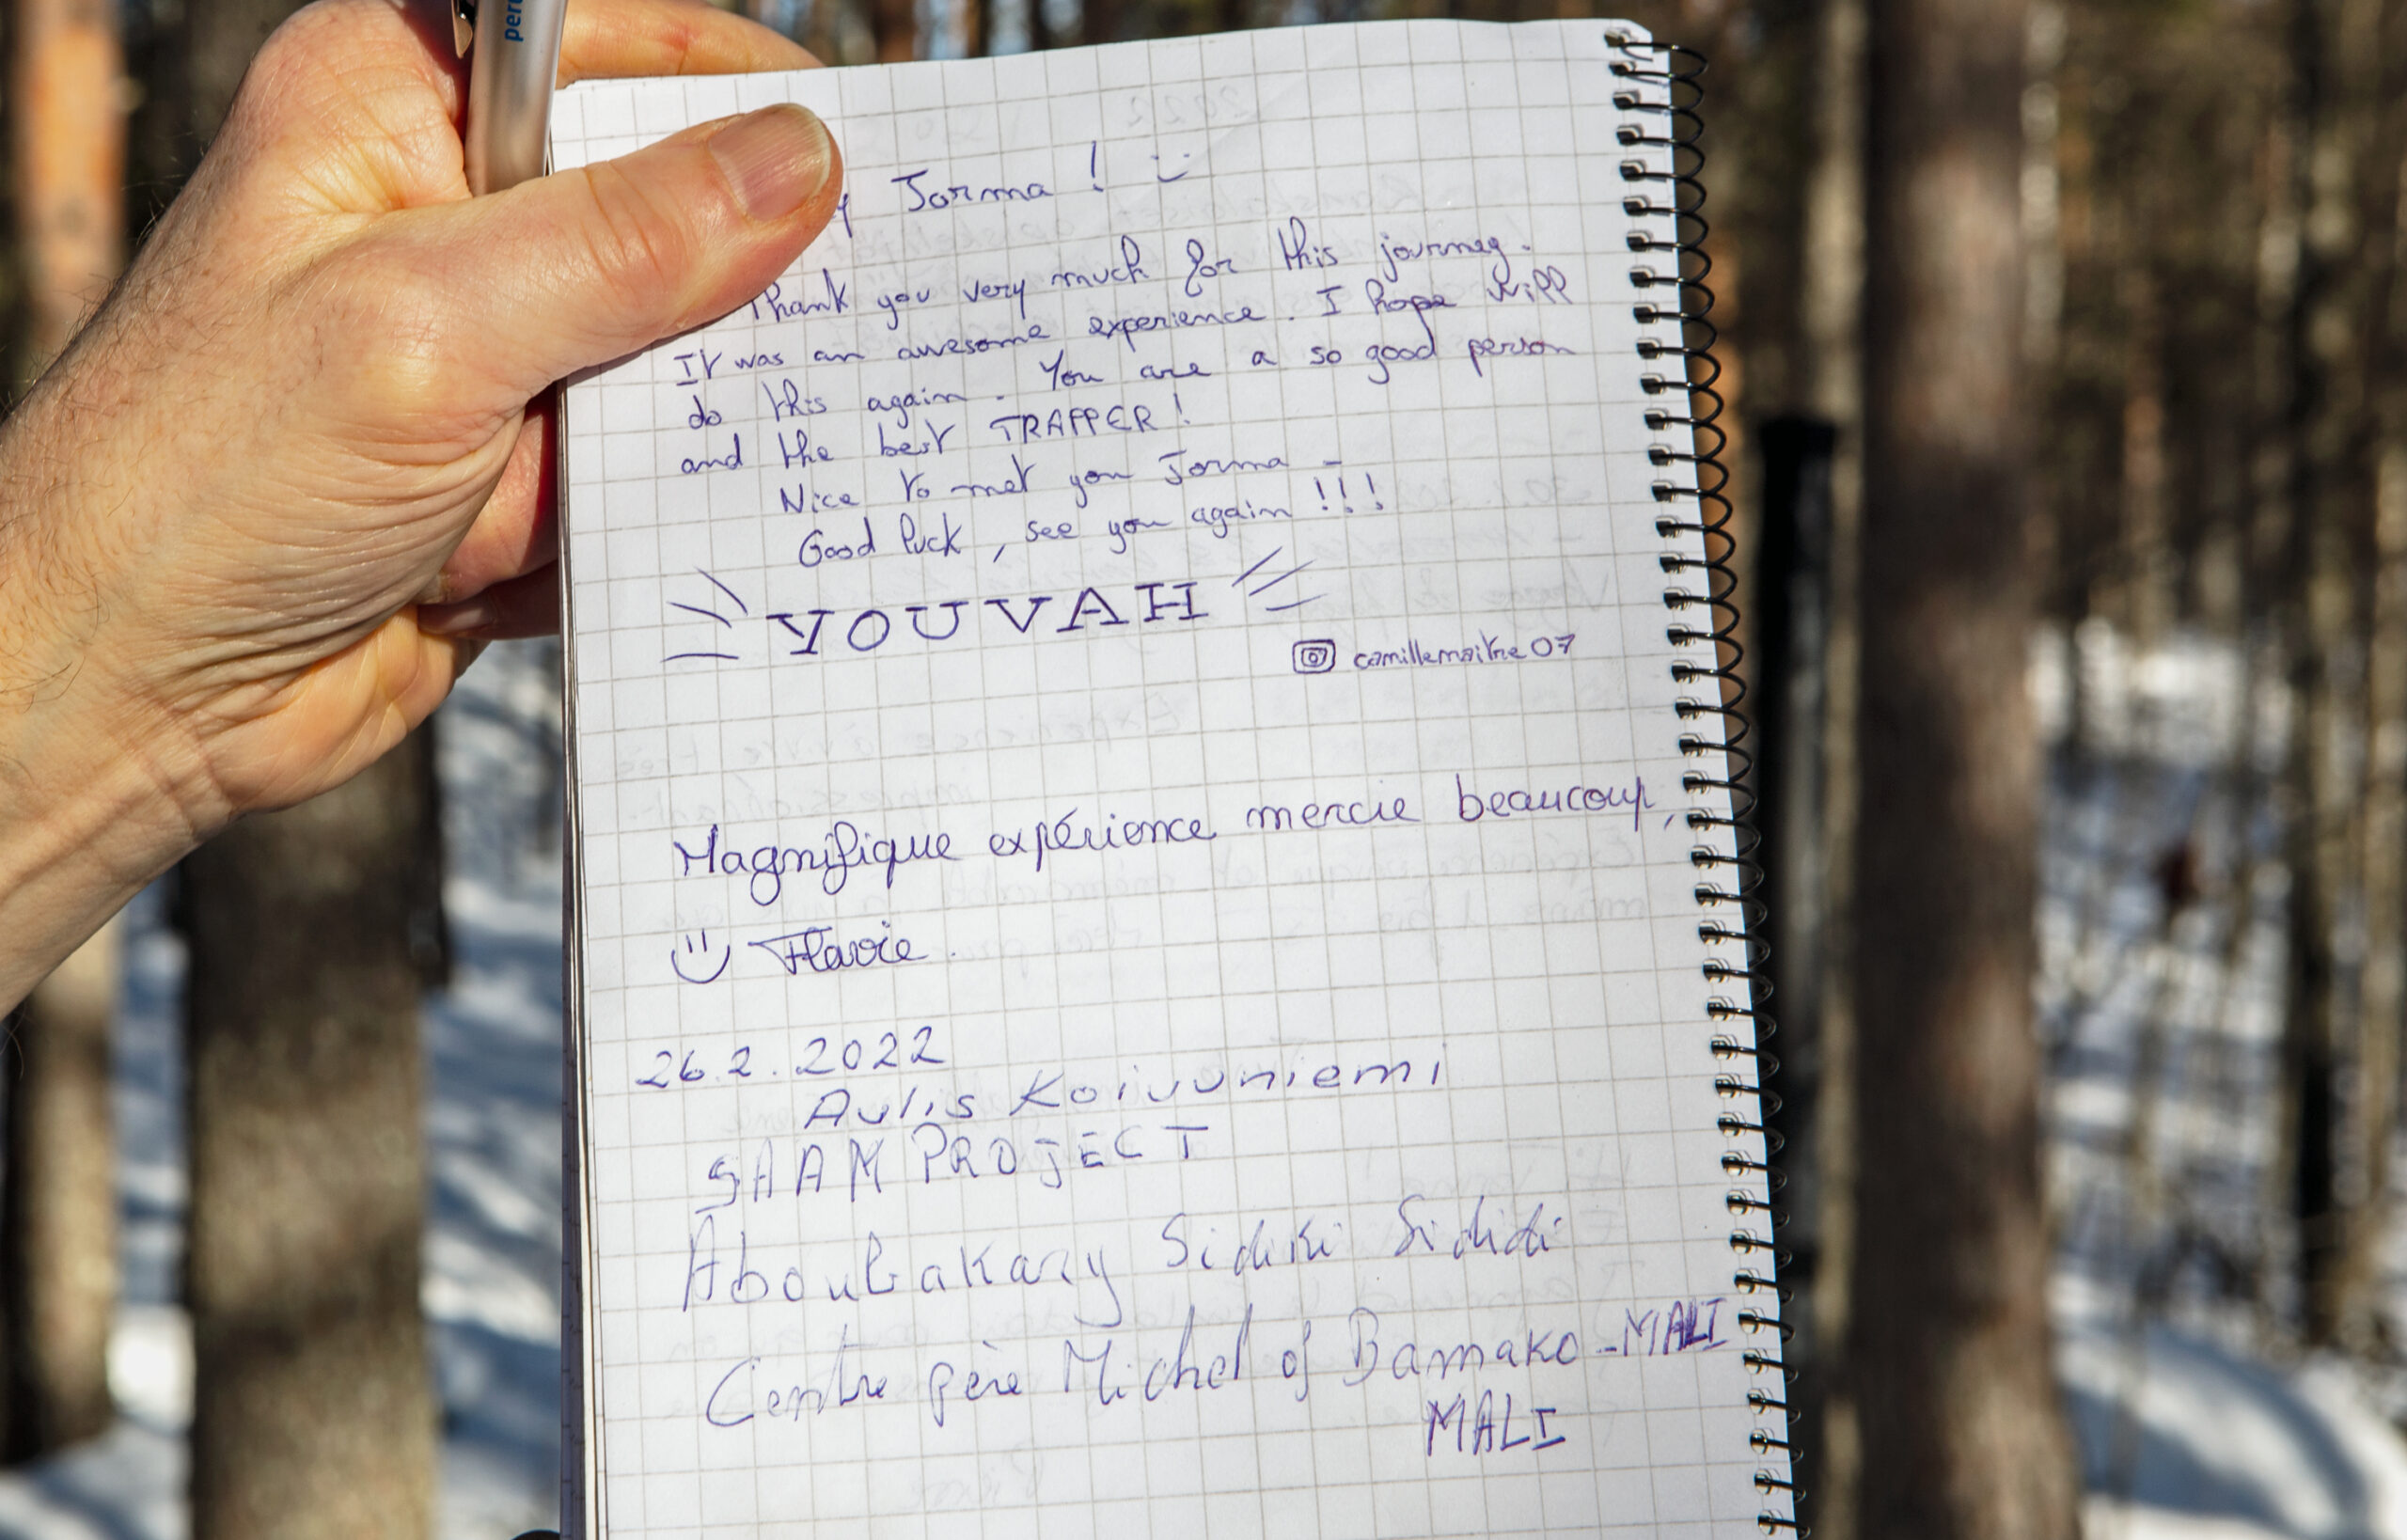 Jorma ! :)
Thank you very much for this journey.
It was an awesome experience. I hope will
do this again. You are a so good person
and the best TRAPPER!
Nice to met you Jorma -
Good luck, see you again !!!
YOUVAH
camillemaitre07
Magnifique expérience mercie beaucoup,
Flavie.
26.2.2022
Aulis Koivuniemi
SAAM PROJECT
Aboubakary Sidiki Sididi
Centre père Michel of Bamako -MALI
MALI